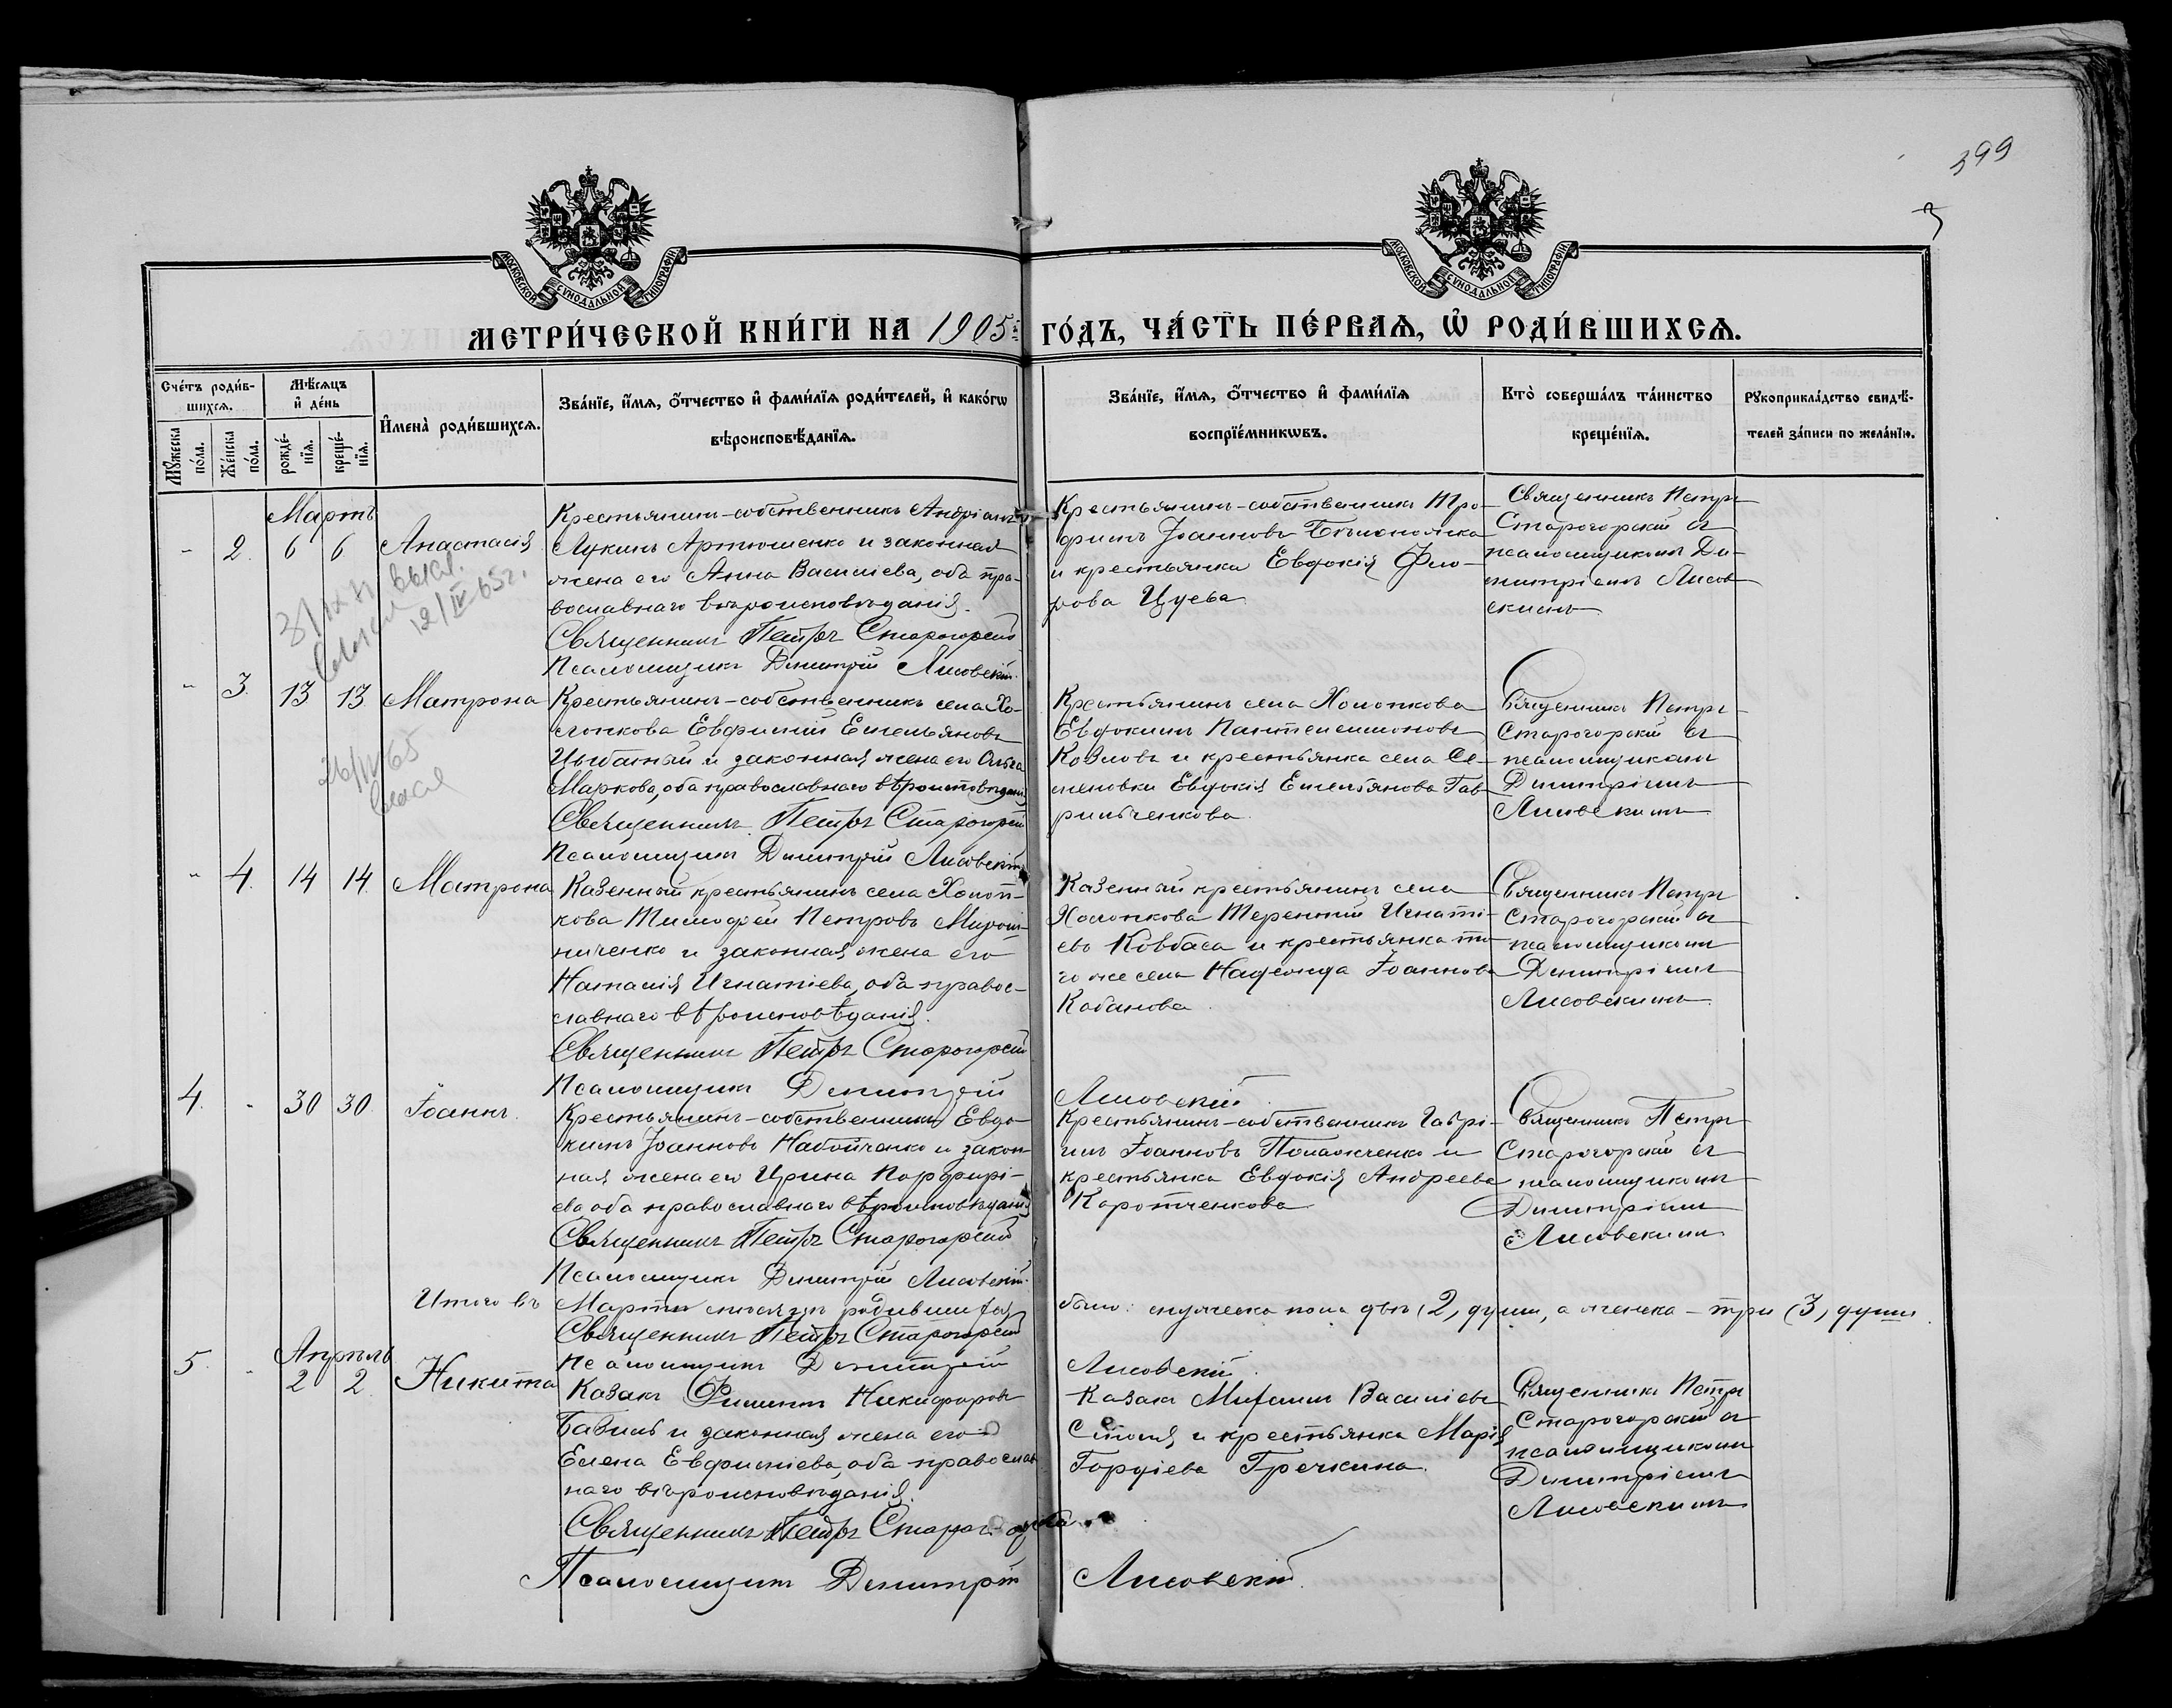 399
3
МОСКОВСКОЙ СѴНОДАЛЬНОЙ ТИПОГРАФІИ
МОСКОВСКОЙ СѴНОДАЛЬНОЙ ТИПОГРАФІИ
МЕТРИ́ЧЕСКОЙ КНИ́ГИ НА 1905й ГО́ДЪ, ЧА́СТЬ ПЕ́РВАѦ, Ѡ҆ РОДИ́ВШИХСѦ.
Сче́тъ роди́в-
шихсѧ.
Мꙋ́жеска по́ла.
Же́нска по́ла.
Мѣ́сѧцъ
и҆ де́нь
рожде́-
нїѧ.
креще́-
нїѧ.
И҆мена̀ роди́вшихсѧ.
Зва́нїе, и҆́мѧ, ѻ҆́тчество и҆ фами́лїѧ роди́телей, и҆ како́гѡ
вѣроисповѣ́данїѧ.
Зва́нїе, и҆́мѧ, ѻ҆́тчество и҆ фами́лїѧ
воспрїе́мникѡвъ.
Кто̀ соверша́лъ та́инство
креще́нїѧ.
Рꙋкоприкла́дство свидѣ́-
телей за́писи по жела́нїю.
Мартъ
- 2. 6 6 Анастасія
Крестьянин-собственникъ Андріанъ
Лукинъ Артюшенко и законная
жена его Анна Васильева, оба пра-
вославнаго вѣроисповѣданія.
Священникъ Петръ Старогорскій
Псаломщикъ Димитрій Лисовскій.
Крестьянинъ-собственникъ Тро-
фимъ Іоанновъ
и крестьянка Евдокія Фло-
рова Цуева
Священникъ Петръ
Старогорскій съ
псаломщикомъ Ди-
митріемъ Лисов
скимъ
12/IV 65г.
- 3. 13 13. Матрона
Крестьянинъ-собственникъ села Хо-
лопкова Евфимій Емельяновъ
Цыбатый и законная жена его Ольга
Маркова, оба православнаго вѣроисповѣданія
Священникъ Петръ Старогорскій
Псаломщикъ Димитрій Лисовскій
Крестьянинъ села Холопкова
Евдокимъ Пантелеимоновъ
Козловъ и крестьянка села Се-
меновки Евдокія Емельянова Гав
рильченкова
Священникъ Петръ
Старогорскій съ
псаломщикомъ
Димитріемъ
Лисовскимъ
26/IV 65
- 4. 14 14. Матрона
Казенный крестьянинъ села Холоп-
кова Тимофей Петровъ Мирош-
ниченко и законная жена его
Наталія Игнатіева, оба правос-
славнаго вѣроисповѣданія.
Священникъ Петръ Старогорскій
Псаломщикъ Димитрій Лисовскій
Казенный крестьянинъ села
Холопкова Терентій Игнаті-
евъ Ковбаса и крестьянка то
го же села Надежда Іоаннова
Кабанова
Священникъ Петръ
Старогорскій съ
псаломщикомъ
Димитріемъ
Лисовскимъ
4. - 30 30. Іоаннъ.
Крестьянинъ-собственникъ Евдо-
кимъ Іоанновъ Набойченко и закон
ная жена его Ирина Порфирі-
ева оба православнаго вѣроисповѣданія
Священникъ Петръ Старогорскій
Псаломщикъ Димитрій Лисовскій.
Крестьянинъ-собственникъ Гаврі-
илъ Іоанновъ и
крестьянка Евдокія Андреева
Коротченкова
Священникъ Петръ
Старогорскій съ
псаломщикомъ
Димитріемъ
Лисовскимъ
Итого въ Мартѣ мѣсяцѣ родившихся было: мужеска пола двѣ (2) души, а женска - три (3) души.
Священникъ Петръ Старогорскій
Псаломщикъ Димитрій Лисовскій
Апрѣль
5. - 2 2. Никита
Казакъ Филиппъ Никифоровъ
Базиль и законная жена его
Елена Евфиміева, оба православ
наго вѣроисповѣданія.
Священникъ Петръ Старогорскій
Псаломщикъ Димитрій Лисовскій.
Казакъ Михаилъ Васильевъ
и крестьянка Марія
Гордіева Гречкина.
Священникъ Петръ
Старогорскій съ
псаломщикомъ
Димитріемъ
Лисовскимъ